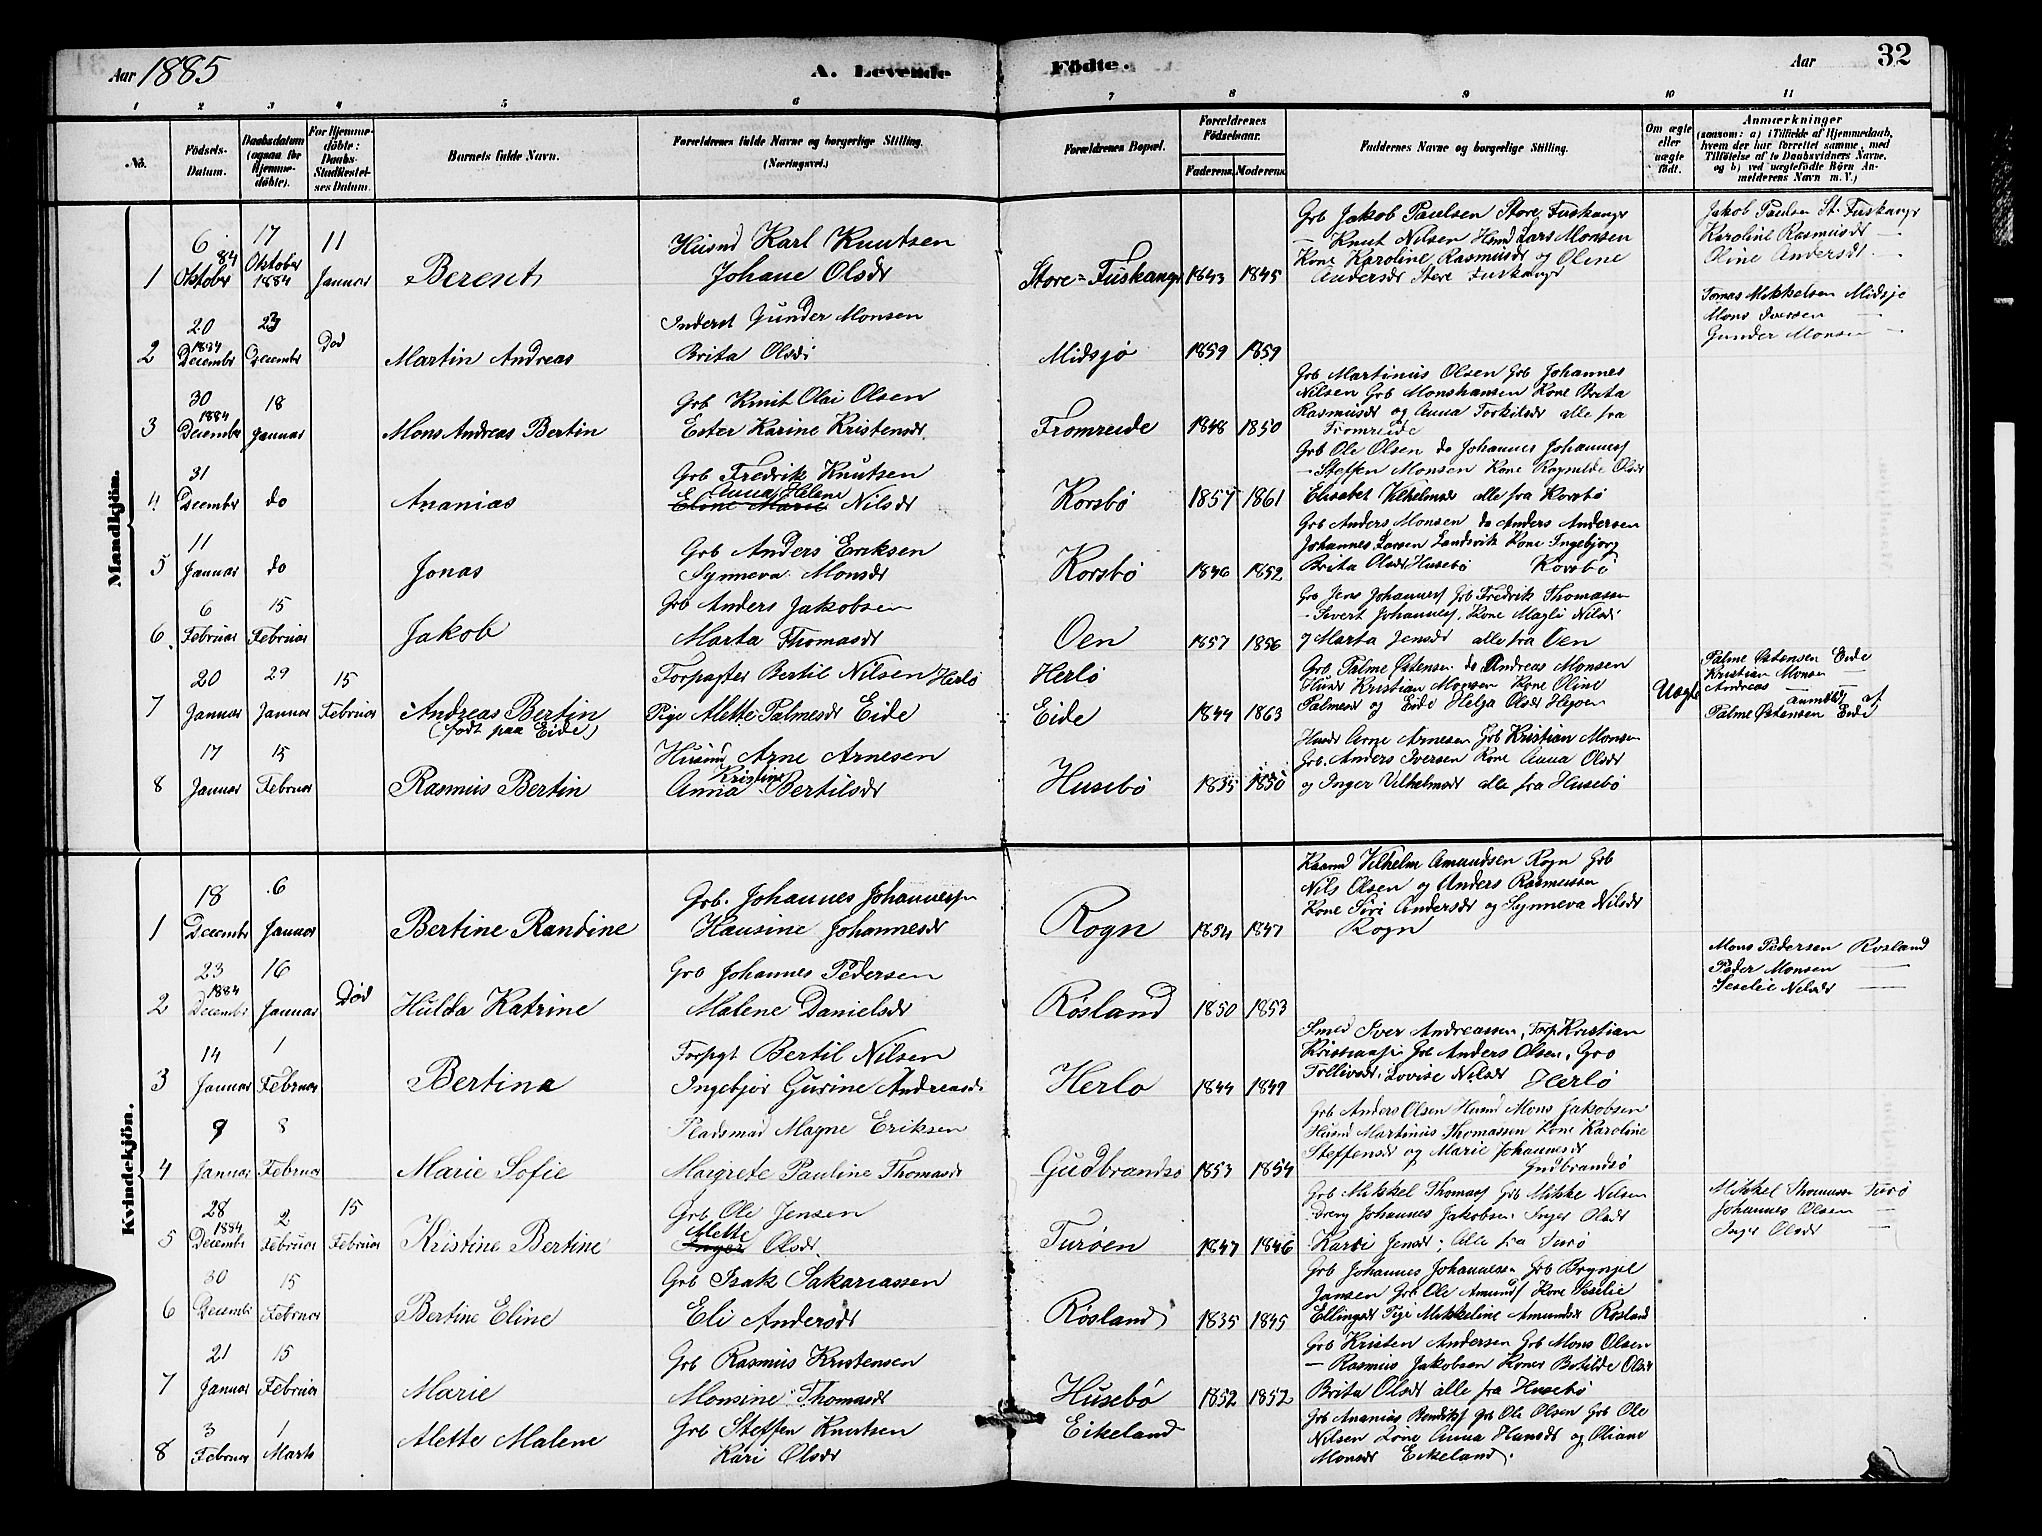 Aar 1885
A. Levende Födte.
Aar 32
1 2 3 4 5 6 7 8 9 10 11
No.
Födsels-Datum.
Daabsdatum (ogsaa for Hjemme-döbte).
For Hjemme-döbte: Daabs-Stadfæstelses Datum.
Barnets fulde Navn.
Forældrenes fulde Navne og borgerlige Stilling. (Næringsvei.)
Forældrenes Bopæl.
Forældrenes Födselsaar.
Faderens. Moderens.
Faddernes Navne og borgerlige Stilling.
Om ægte eller uægte födt.
Anmærkninger (saasom: a) i Tilfælde af Hjemmedaab, hvem der har forrettet samme, med Tilföielse af to Daabsvidners Navne, og b) ved uægtefödte Börn Anmelderens Navn m. V.)
Mandkjön.
1
6 84 Oktober
17 Oktober 1884
11 Januar
Berent
Husmd Karl Knutsen
Johane Olsdr
Store-Fuskanger
1843 1845
Grb Jakob Paulsen Store Fuskanger
— Knut Nilsen Hsmd Lars Monsen
Kone Karoline Rasmusdr og Oline
Andersdr Store Fuskangr
Jakob Paulsen St. Fuskangr
Karoline Rasmusdr —
Oline Andersdr —
2
20 1884 Decembr
23 Decembr
Død
Martin Andreas
Inderst Gunder Monsen
Brita Olsdr
Midsjø
1859 1859
Tomas Mikkelsen Midsjø
Mons Iversen —
Gunder Monsen —
3
30 1884 Decembr
18 Januar
Mons Andreas Bertin
Grb Knut Olai Olsen
Ester Karine Kristensdr
Fromreide
1848 1850
Grb Martinius Olsen Grb Johannes
Nilsen Grb Monshansen Kone Brita
Rasmusdr og Anna Torkilsdr alle fra
Fromreide
4
31 Decembr
do
Ananias
Grb Fredrik Knutsen
Anna Helene
Nilsdr
Korsbø
1857 1861
Grb Ole Olsen do Johannes Johannesf
— Steffen Monsen Kone Ragnilde Olsdr
Elisabet Vilhelmsdr alle fra Korsbø
5
11 Januar
do
Jonas
Grb Anders Eriksen
Synneva Monsdr
Korsbø
1846 1852
Grb Anders Monsen do Anders Andersen
Johannes Larsen Landsvik Kone Ingebjorg
Brita Olsdr Husebø Korsbø
6
6 Februar
15 Februar
Jakob
Grb Anders Jakobsen
Marta Thomasdr
Oen
1857 1856
Grb Jens Johannesf Grb Fredrik Thomasen
— Sivert Johannesf. Kone Magli Nilsdr
og Marta Jensdr alle fra Oen
7
20 Januar
29 Januar
15 Februar
Andreas Bertin
(født paa Eide)
Forpagter Bertil Nilsen Herlø
Pige Alette Palmesdr Eide
Herlø
Eide
1844 1863
Grb Palme Østensen do Andreas Monsen
Husmd Kristian Monsen Kone Oline
Palmesdr og Eide Helga Olsdr
Uægte
Palme Østensen Eide
Kristian Monsen —
Andreas — anmeldt af
Palme Østensen Eide
8
17 Januar
15 Februar
Rasmus Bertin
Husmd Arne Arnesen
Kristine
Anna Bertilsdr
Husebø
1835 1850
Husmd Arne Arnesen Grb Kristian Monsen
Grb. Anders Iversen Kone Anna Olsdr
og Inger Vilhelmsdr alle fra Husebø
Kvindekjön.
1
18 Decembr
6 Januar
Bertine Randine
Grb. Johannes Johannessen
Hansine Johannesdr
Rogn
1854 1847
Kaarmd Vilhelm Amundsen Rogn Grb
Nils Olsen og Anders Rasmussen
Kone Siri Andersdr og Synneva Nilsdr
Rogn
2
23 1884 Decembr
16 Januar
Død
Hulda Katrine
Grb Johannes Pedersen
Malene Danielsdr
Røsland
1850 1853
Mons Pedersen Rosland
Peder Monsen —
Seselie Nilsdr —
3
14 Januar
1 Februar
Bertina
Forpgt Bertil Nilsen
Ingebjor Gurine Andreasdr
Herlo
1844 1849
Smed Iver Andreassen, Forp Kristian
Kristiansen Grb Anders Olsen, Gro
Tollivsdr. Lovise Nilsdr Herlø
4
9 Januar
8 Februar
Marie Sofie
Pladsmad Magne Eriksen
Margrete Pauline Thomasdr
Gudbrandsø
1853 1854
Grb Anders Olsen Husmd Mons Jakobsen
Husmd Martinus Thomassen Kone Karoline
Steffensdr og Marie Johannesdr
Gudbrandsø
5
28 1884 Decembr
2 Februar
15 Februar
Kristine Bertine
Grb Ole Jensen
Alette
Inger Olsdr.
Turøen
1847 1846
Grb. Mikkel Thomasf Grb Mikke Nilsen
Dreng Johannes Jakobsen Inger Olsdr
Kari Jensdr, alle fra Turø
Mikkel Thomassen Turø
Johannes Olsen —
Inger Olsdr —
6
30 Decembr
15 Februar
Bertine Eline
Grb Isak Sakariassen
Eli Andersdr
Røsland
1835 1845
Grb Johannes Johannessen Grb Brynjel
Jansen Grb Ole Amundsf Kone Seselie
Ellingsdr Pige Mikkeline Amundsdr Rosland
7
21 Januar
15 Februar
Marie
Grb Rasmus Kristensen
Monsine Thomasdr
Husebø
1852 1852
Grb Kristen Andersen Grb Mons Olsen
— Rasmus Jakobsen Koner Botilde Olsdr
Brita Olsdr alle fra Husebø
8
3 Februar
1 Marts
Alette Malene
Grb Steffen Knutsen
Kari Olsdr
Eikeland
Grb Ananias Benditsf Grb Ole Olsen Grb Ole
Nilsen Kone Anna Hansdr og Oliane
Monsdr Eikeland.